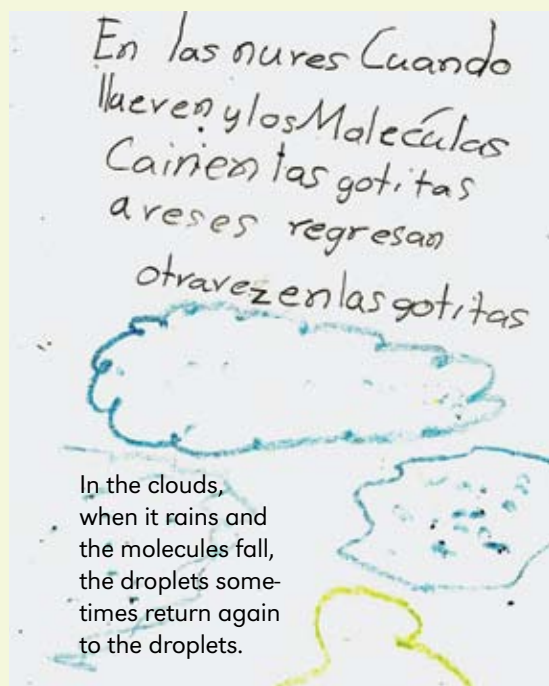 En las nures Cuando
llueven y los Moleculas
Cainen las gotitas
a veses regresan
otra vez en las gotitas
In the clouds,
when it rains and
the molecules fall,
the droplets some-
times return again
to the droplets.